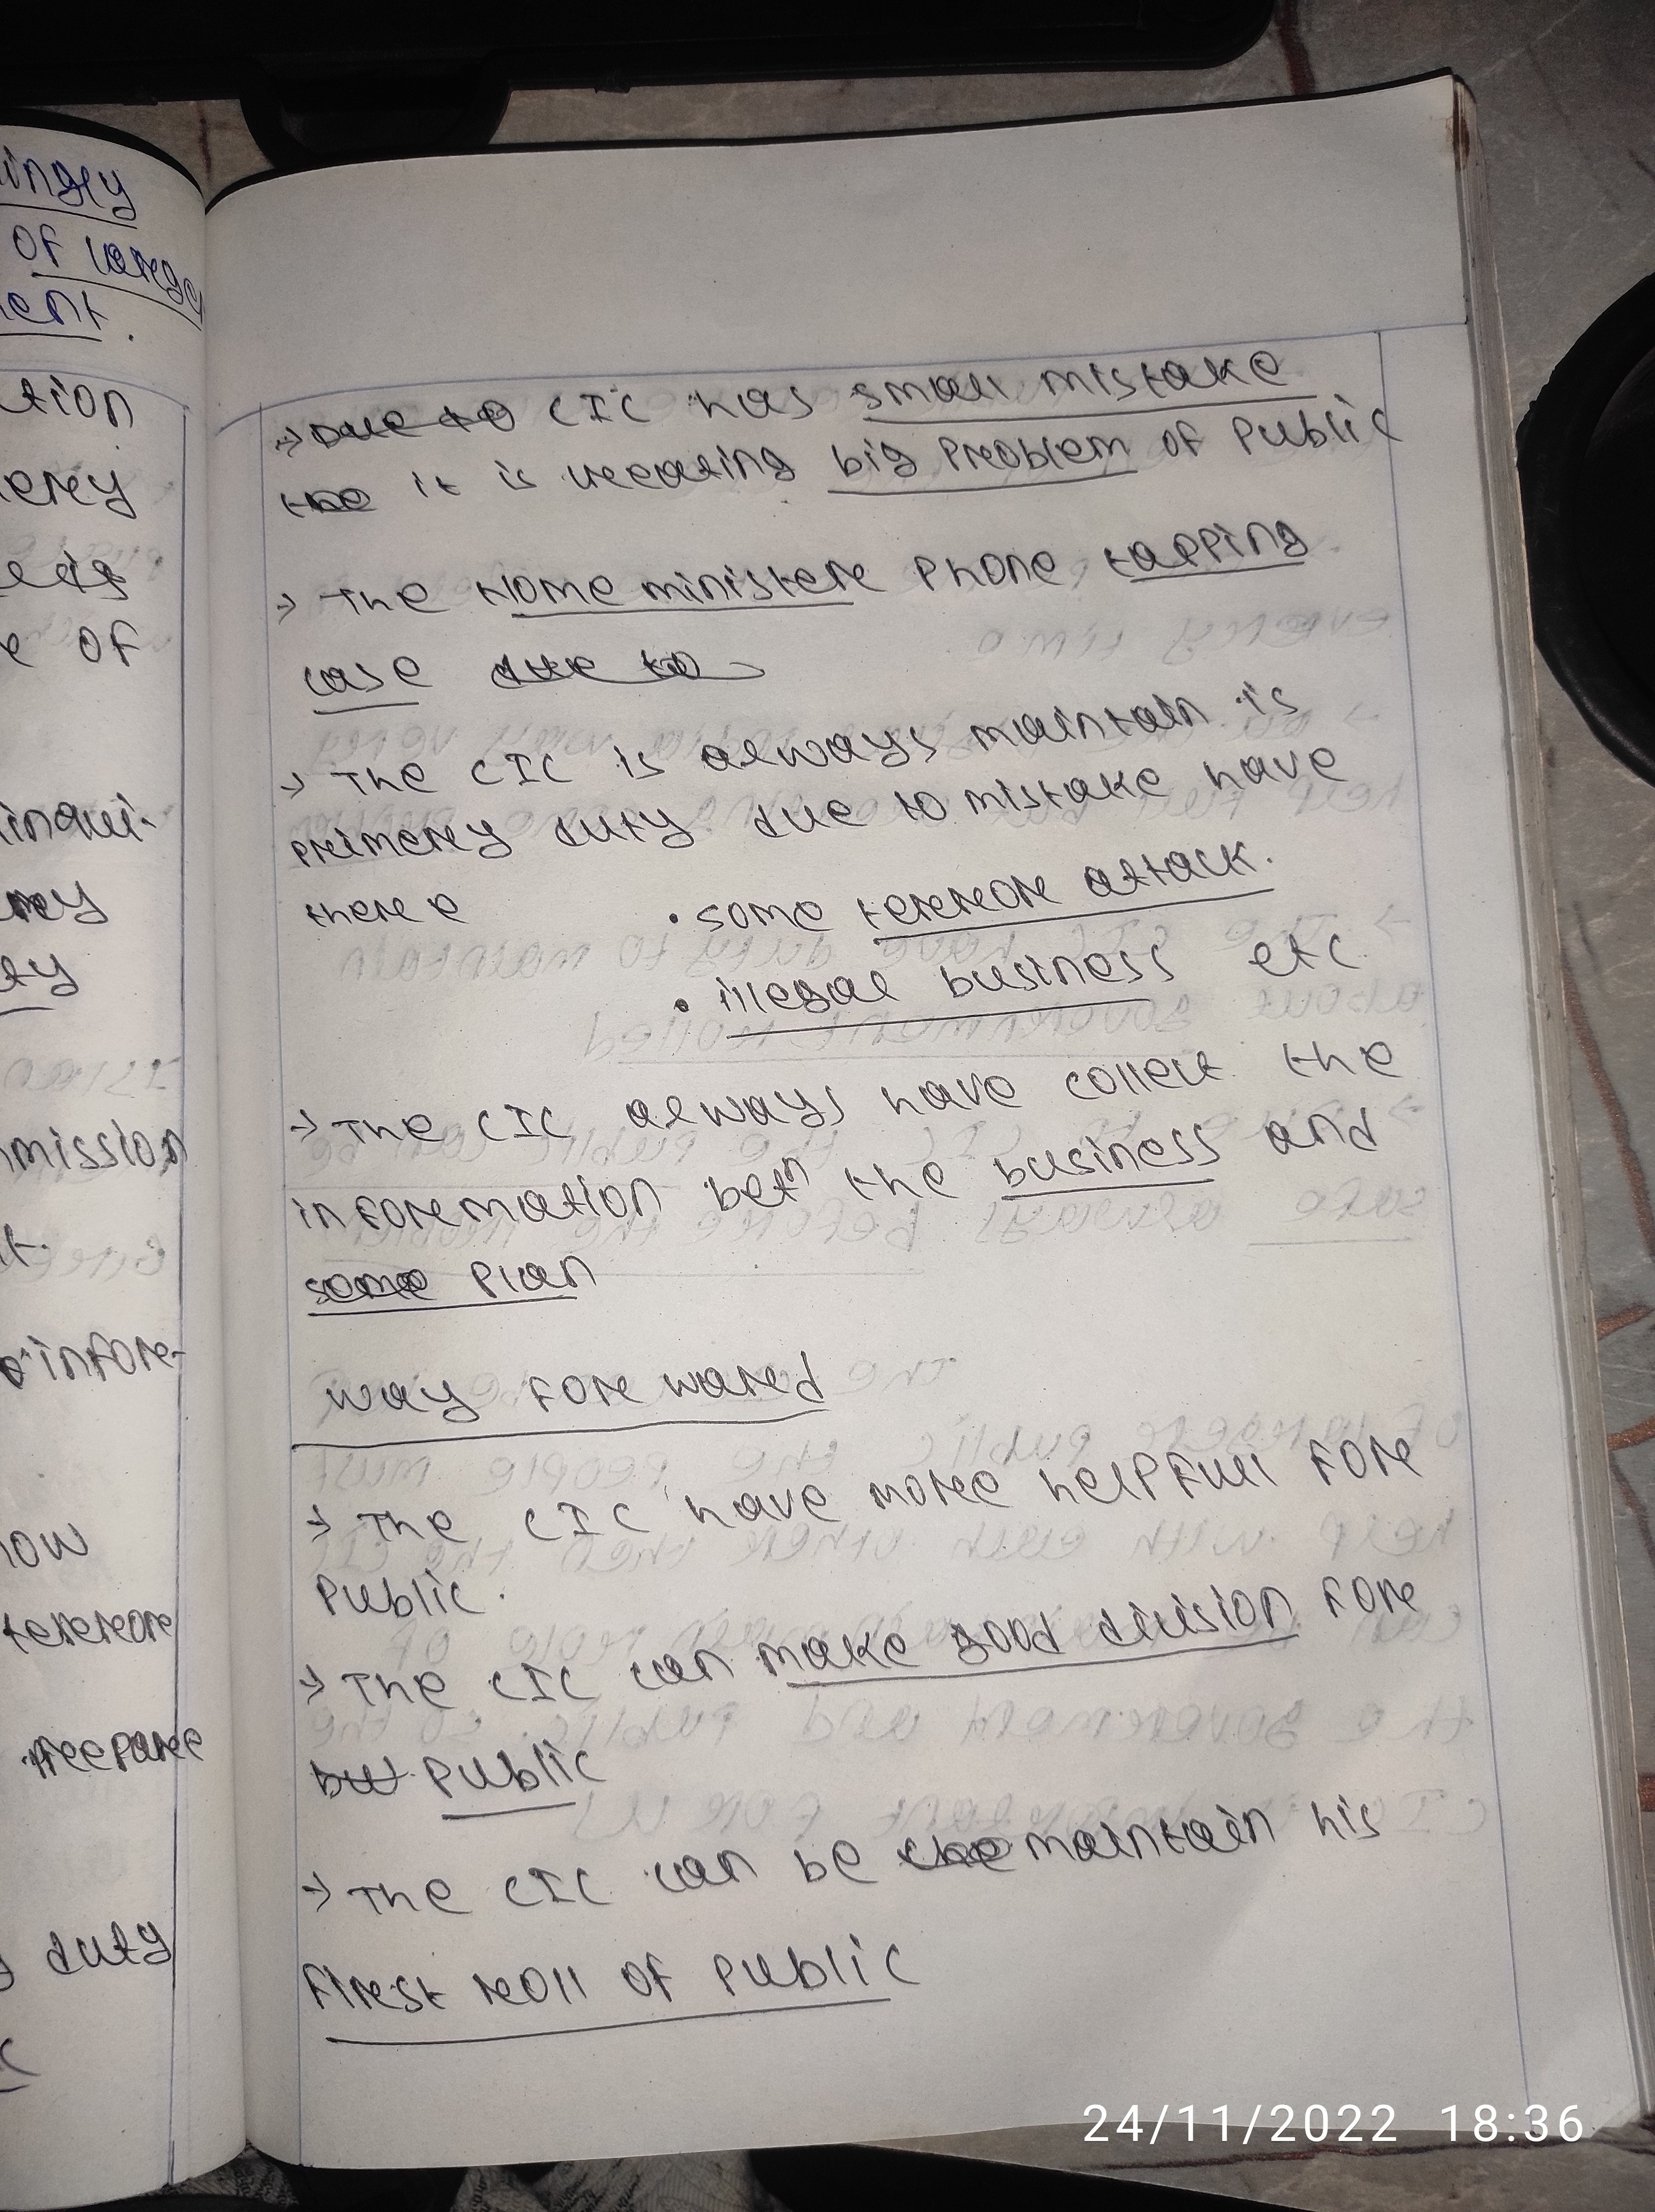 ingly
of large
ent.
tion
erey
e of
inqui-
rey
ty
mission
t.
infore-
now
tererore
Preepare
duty
→ Due to CIC has small mistake
the it is creating big Problem of Public
→ The Home ministere Phone tapping
case due to
→ The CIC is always maintain is
preimerey duty due to mistake have
there
• some tererore attack.
• illegal business etc
→ The CIC always have collect the
inforemation betn the business and
some Plan
way fore wared
→ The CIC have more helpfull fore
Public.
→ The CIC can make good division fore
but Public
→ The CIC can be the maintain his
firest roll of Public
24/11/2022 18:36